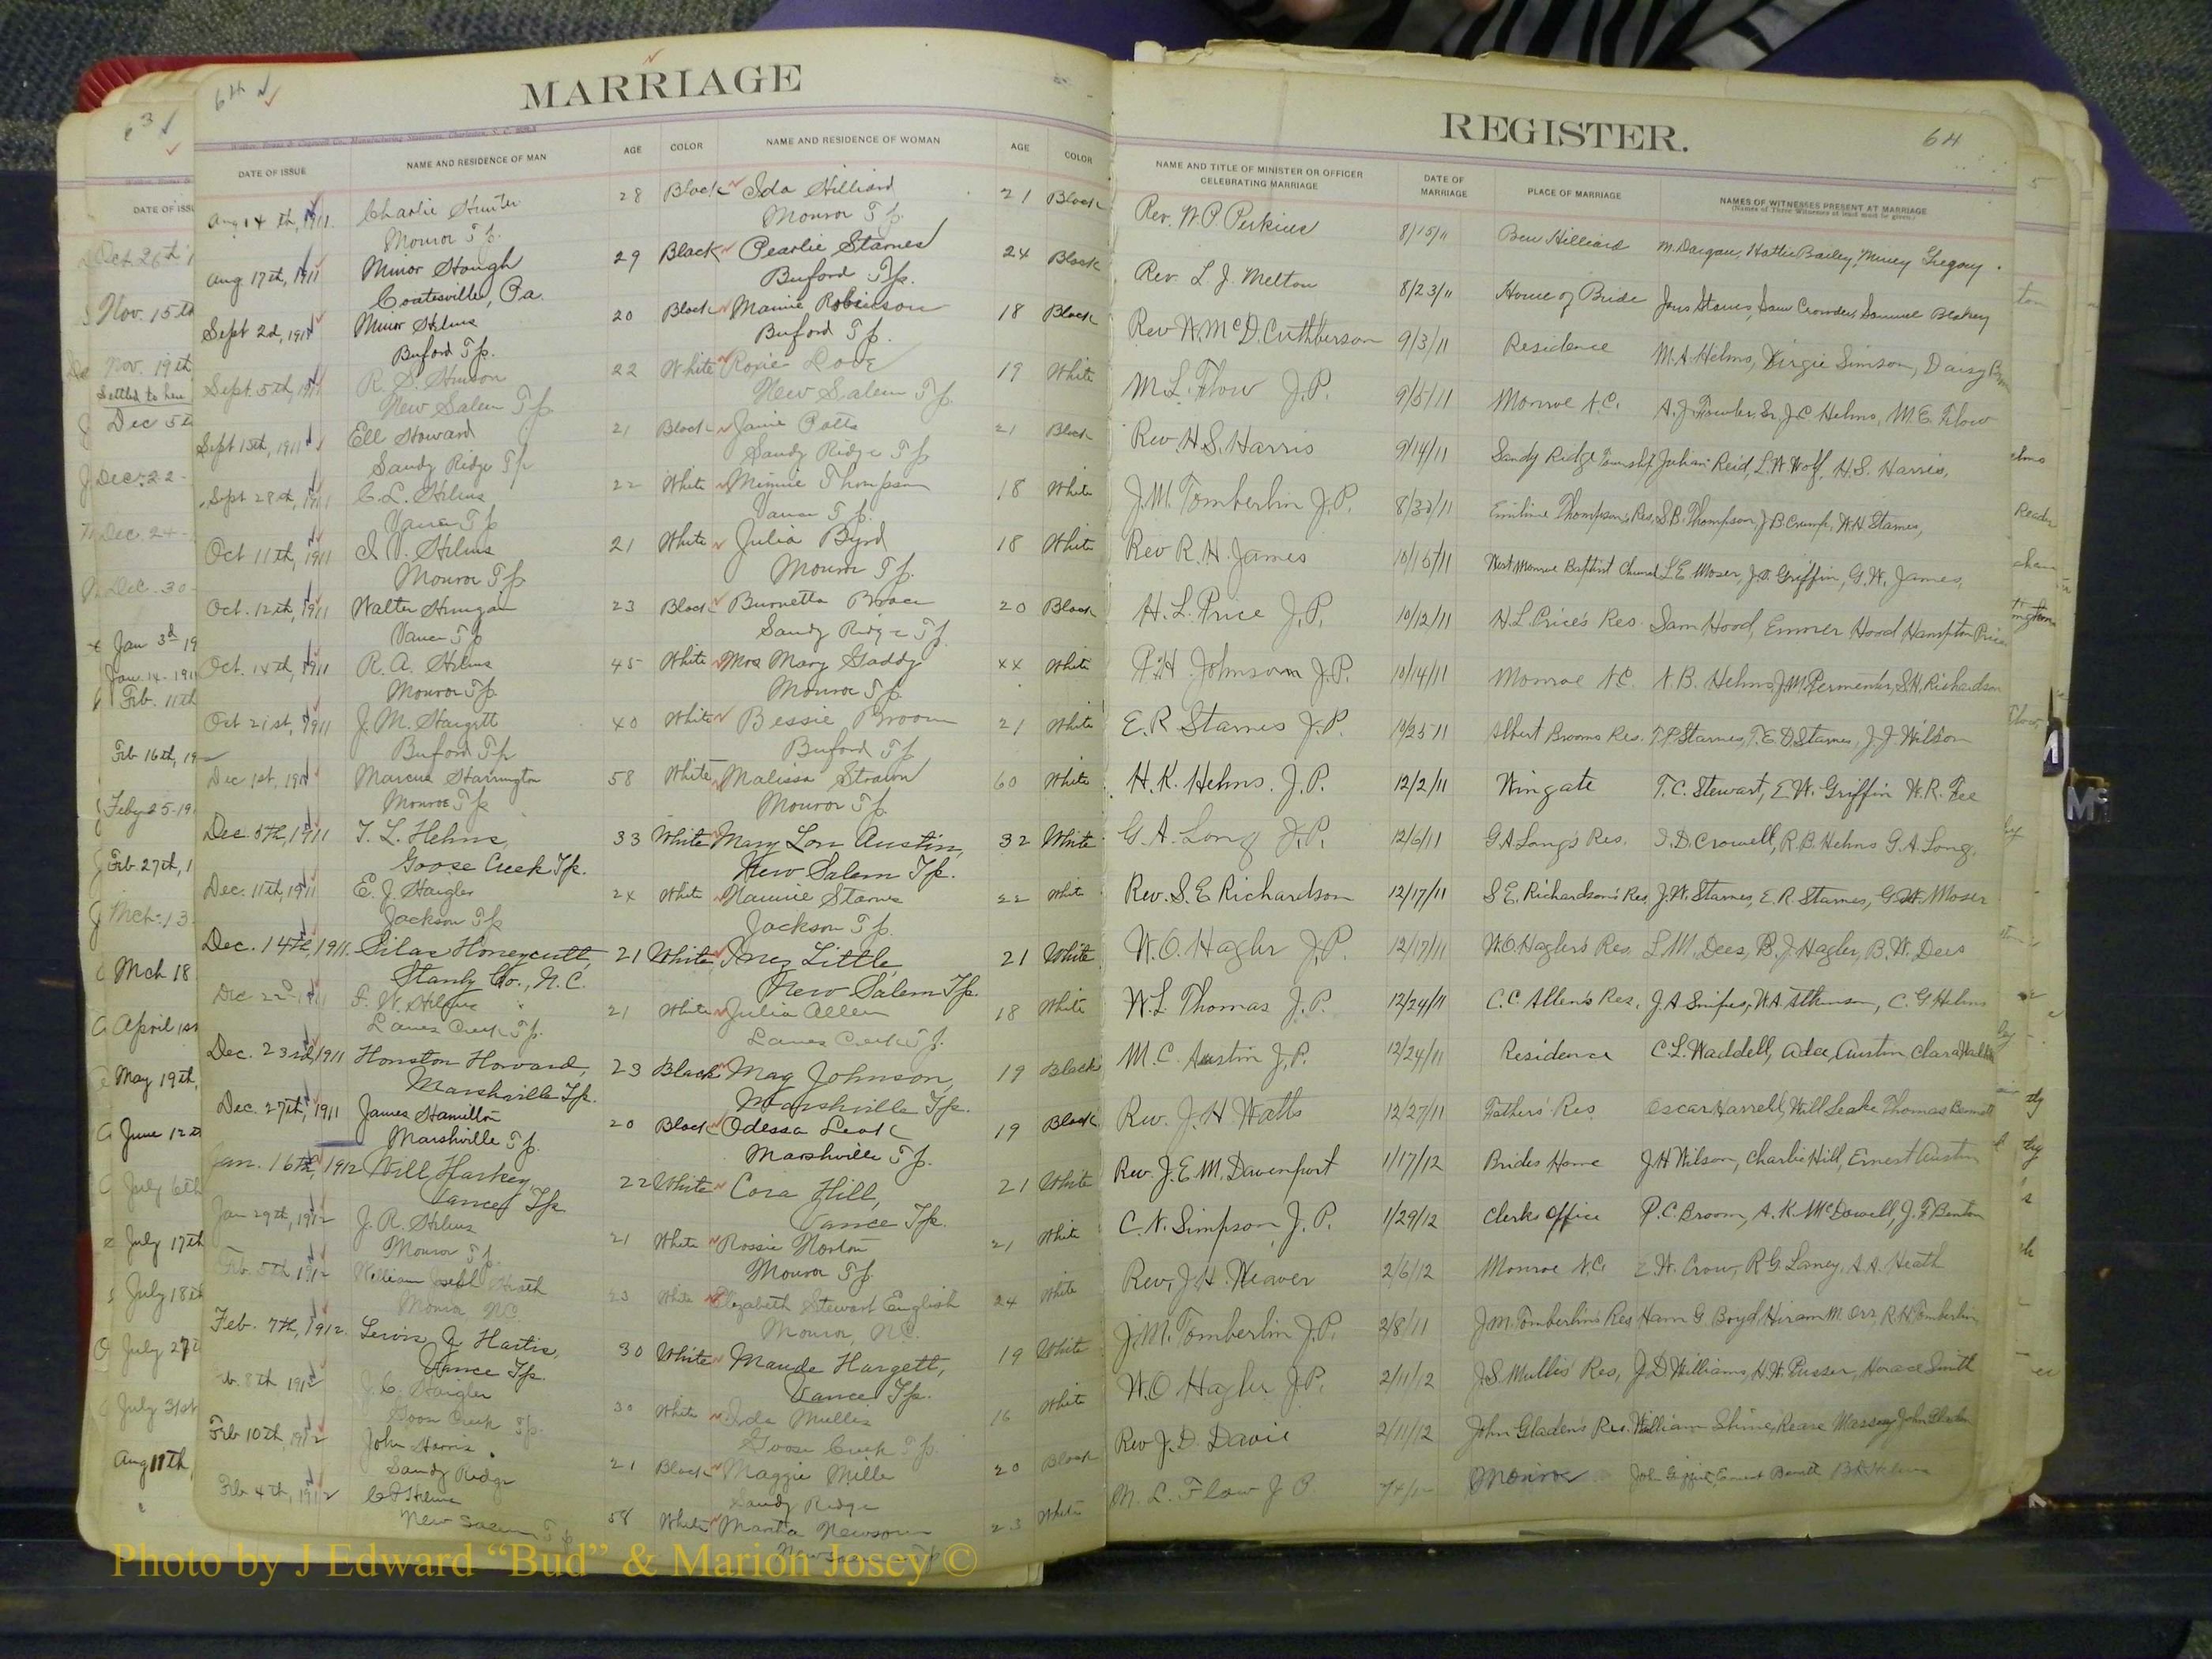 MARRIAGE
64
63
DATE OF ISSUE
NAME AND RESIDENCE OF MAN
AGE
COLOR
NAME AND RESIDENCE OF WOMAN
AGE
COLOR
Aug 14th, 1911. Charlie Hunter 28 Black Ida Hilliard 21 Black
Monroe Tp. Monroe Tp.
Aug 17th, 1911 Minor Hough 29 Black Pearlie Starnes 24 Black
Coatesville, Pa. Buford Tp.
Sept 2d, 1911 Minor Helms 20 Black Mamie Robinson 18 Black
Buford Tp. Buford Tp.
Sept. 5th, 1911 R. S. Hinson 22 White Roxie Love 19 White
New Salem Tp. New Salem Tp.
Sept 13th, 1911 Ell Howard 21 Black Janie Potts 21 Black
Sandy Ridge Tp Sandy Ridge Tp
Sept 28th, 1911 C. L. Helms 22 White Minnie Thompson 18 White
Vance Tp Vance Tp.
Oct 11th, 1911 Helms 21 White Julia Byrd 18 White
Monroe Tp Monroe Tp.
Oct. 12th, 1911 Walter 23 Black Burnetta 20 Black
Vance Tp Sandy Ridge Tp.
Oct. 14th, 1911 R. A. Helms 45 White Mrs Mary Gaddy xx White
Monroe Tp. Monroe Tp.
Oct 21st, 1911 J. M. Hargett 40 White Bessie Broom 21 White
Buford Tp Buford Tp
Dec 1st, 1911 Marcus Harrington 58 White Malissa Strawn 60 White
Monroe Tp Monroe Tp.
Dec. 5th, 1911 T. L. Helms, 33 White Mary Lou Austin, 32 White
Goose Creek Tp. New Salem Tp.
Dec. 11th, 1911 E. J. Haigler 2x White Nannie Starnes 22 White
Jackson Tp Jackson Tp.
Dec. 14th, 1911. Silas Honeycutt, 21 White Inez Little, 21 White
Stanly Co., N.C. New Salem Tp.
Dec 22nd, 1911 21 White Julia Allen 18 White
Lanes Creek Tp. Lanes Creek Tp.
Dec. 23rd, 1911 Houston Howard, 23 Black Mag Johnson, 19 Black
Marshville Tp. Marshville Tp.
Dec. 27th, 1911 James Hamilton 20 Black Odessa Leak 19 Black
Marshville Tp. Marshville Tp.
Jan. 16th, 1912 Will Harkey, 22 White Cora Hill, 21 White
Vance Tp. Vance Tp.
Jan 29th, 1912 J. R. Helms 21 White Rossie Norton 21 White
Monroe Tp. Monroe Tp.
Feb. 5th 1912 William Joseph Heath 23 White Elizabeth Stewart English 24 White
Monroe NC. Monroe, N.C.
Feb. 7th, 1912. Lewis J. Hartis, 30 White Maude Hargett, 19 White
Vance Tp. Vance Tp.
Feb. 8th 1912 J. C. Haigler 30 White Ida Mullis 16 White
Goose Creek Tp. Goose Creek Tp.
Feb 10th, 1912 John Harris 21 Black Maggie Miller 20 Black
Sandy Ridge Sandy Ridge
Feb 4th, 1912 Helms 58 White Martha Newsom 23 White
New Salem Tp New Salem Tp
REGISTER.
64
NAME AND TITLE OF MINISTER OR OFFICER
CELEBRATING MARRIAGE
DATE OF
MARRIAGE
PLACE OF MARRIAGE
NAMES OF WITNESSES PRESENT AT MARRIAGE
(Names of Three Witnesses at least must be given.)
Rev. W. P. Perkins 8/15/11 Ben Hilliard M. Dargan, Hattie Bailey, Gregory.
Rev. L. J. Melton 8/23/11 Home of Bride Starnes, Sam Crowder, Samuel Blakey
Rev W. McD. Cuthberson 9/3/11 Residence M. A. Helms, Virgie Simson, Daisy
M. L. Flow J.P. 9/5/11 Monroe N.C. A. J. Fowler Sr, J. C Helms, M. E. Flow
Rev H. S. Harris 9/14/11 Sandy Ridge Township Julian Reid, L. W Wolf, H. S. Harris,
J. M. Tomberlin J.P. 8/30/11 Emiline Thompson's Res. S. B. Thompson, J B Crump, W. H Starnes,
Rev R. H. James 10/15/11 West Monroe Baptist Church L. E Moser, J. D. Griffin, G. W. James,
H. L. Price J.P. 10/12/11 H L Price's Res. Sam Hood, Emmer Hood Hampton Price
P. H. Johnson J.P. 10/14/11 Monroe N.C. N. B. Helms, J. M. Permenter, S. H. Richardson
E. R Starnes J.P. 10/25 11 Albert Brooms Res. T. P. Starnes, T. E. D. Starnes, J. J. Wilson
H. K. Helms. J.P. 12/2/11 Wingate T. C. Stewart, E. W. Griffin W. R. Fee
G. A. Long J.P. 12/6/11 G. A. Long's Res. I. D. Crowell, R. B. Helms G. A. Long.
Rev. S. E Richardson 12/17/11 S E. Richardson's Res. J. W. Starnes, E. R. Starnes, G. W. Moser
W. O. Hagler J.P. 12/17/11 W. O Hagler's Res. L. M. Dees, B. J. Hagler, B. W. Dees
W. L. Thomas J.P. 12/24/11 C. C. Allen's Res, J. A Snipes, W. A. Atkinson, C. G Helms
M. C. Austin J.P. 12/24/11 Residence C. L. Waddell, Ada Austin, Clara
Rev. J. H. Watts 12/27/11 Fathers' Res, Oscar Harrell, Will Leake Thomas Bennett
Rev. J. E. M. Davenport 1/17/12 Brides Home J H Wilson, Charlie Hill, Ernest Austin
C. N. Simpson, J.P. 1/29/12 Clerks Office P. C. Broom, A. K. McDowell, J. F Benton
Rev. J. H. Weaver 2/6/12 Monroe N.C. E. W. Crow, R. G. Laney, A. A. Heath
J. M. Tomberlin J.P. 2/8/11 J M Tomberlin's Res Ham G. Boyd, Hiram M. Orr, R. H. Tomberlin
W. O Hagler J.P. 2/11/12 J. S. Mullis' Res, J. D Williams, H. W. Pusser, Horace Smith
Rev J. D. Davie 2/11/12 John Gladen's Res. William Massey John
M. L. Flow J P. Monroe John Griffin, Ernest Helms
DATE OF ISSU
Oct 26th 1
Nov. 15th
Nov. 19th
Settled to here
Dec 5th
Dec. 22-
Dec. 24-
Dec. 30-
Jan 3d 19
Jan. 14-191
Feb. 11th
Feb 16th, 19
Feby 25-19
Feb. 27th, 1
Mch-13
Mch 18
April 1st
May 19th,
June 12th
July 6th
July 17th
July 18th
July 27th
July 31st
Aug 11th,
Photo by J Edward “Bud” & Marion Josey ©